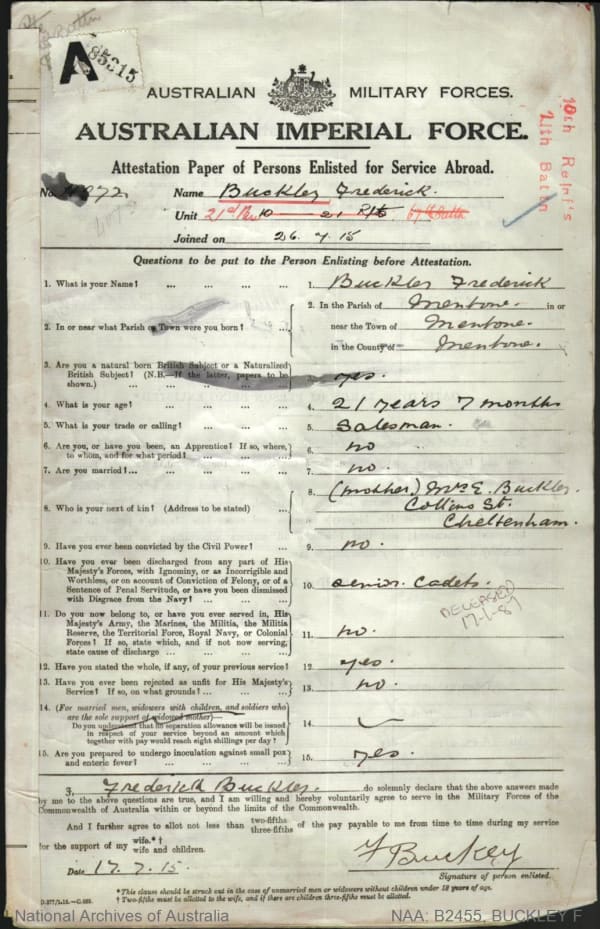 A
85315
AUSTRALIAN MILITARY FORCES.
AUSTRALIAN IMPERIAL FORCE.
Attestation Paper of Persons Enlisted for Service Abroad.
10th Reinf's
21th Battn
No. 4072 Name Buckley Frederick.
Unit 21st Bn 10 21 R/15 67th Battn
Joined on 26.7.15
Questions to be put to the Person Enlisting before Attestation.
1. What is your Name? ... ... ... ... 1. Buckley Frederick
2. In or near what Parish or Town were you born? ... 2. In the Parish of Mentone. in or
near the Town of Mentone.
in the County of Mentone.
3. Are you a natural born British Subject or a Naturalized
British Subject? (N.B.—If the latter, papers to be
shown.) ... ... ... ... ... 3. yes.
4. What is your age? ... ... ... ... 4. 21 years 7 months
5. What is your trade or calling? ... ... ... 5. Salesman.
6. Are you, or have you been, an Apprentice? If so, where,
to whom, and for what period? ... ... ... 6. no
7. Are you married?... ... ... ... ... 7. no.
8. Who is your next of kin? (Address to be stated) ... 8. (mother) Mrs E. Buckley.
Collins St.
Cheltenham.
9. Have you ever been convicted by the Civil Power? ... 9. no.
10. Have you ever been discharged from any part of His
Majesty's Forces, with Ignominy, or as Incorrigible and
Worthless, or on account of Conviction of Felony, or of a
Sentence of Penal Servitude, or have you been dismissed
with Disgrace from the Navy? ... ... ... 10. senior. Cadets.
DECEASED
17-1-87
11. Do you now belong to, or have you ever served in, His
Majesty's Army, the Marines, the Militia, the Militia
Reserve, the Territorial Force, Royal Navy, or Colonial
Forces? If so, state which, and if not now serving,
state cause of discharge ... ... ... ... 11. no.
12. Have you stated the whole, if any, of your previous service? 12. yes.
13. Have you ever been rejected as unfit for His Majesty's
Service? If so, on what grounds? ... ... ... 13. no.
14. (For married men, widowers with children, and soldiers who
are the sole support of widowed mother)—
Do you understand that no separation allowance will be issued
in respect of your service beyond an amount which
together with pay would reach eight shillings per day? 14.
15. Are you prepared to undergo inoculation against small pox
and enteric fever? ... ... ... ... 15. yes.
I, Frederick Buckley. do solemnly declare that the above answers made
by me to the above questions are true, and I am willing and hereby voluntarily agree to serve in the Military Forces of the
Commonwealth of Australia within or beyond the limits of the Commonwealth.
And I further agree to allot not less than two-fifths three-fifths of the pay payable to me from time to time during my service
for the support of my wife.*† wife and children.
Date 17.7.15. F Buckley
Signature of person enlisted.
*This clause should be struck out in the case of unmarried men or widowers without children under 18 years of age.
† Two-fifths must be allotted to the wife, and if there are children three-fifths must be allotted.
National Archives of Australia NAA: B2455, BUCKLEY F